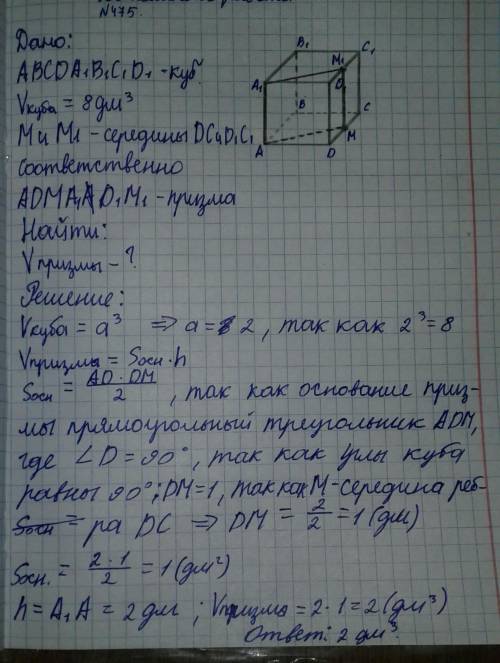 №475.
Дано:
ABCDA₁B₁C₁D₁ - куб
Vкуба = 8дм³
M и M₁ - середины DC и D₁C₁
соответственно
ADMA₁D₁M₁ - призма
Найти:
Vпризмы - ?
Решение:
Vкуба = a³ ⇒ a = 2, так как 2³ = 8
Vпризмы = Sосн · h
Sосн = AD · DM / 2, так как основание приз-
мы прямоугольный треугольник ADM,
где ∠D = 90°, так как углы куба
равны 90°; DM = 1, так как M - середина реб-
ра DC ⇒ DM = 2/2 = 1 (дм)
Sосн. = 2 · 1 / 2 = 1 (дм²)
h = A₁A = 2 дм ; Vпризмы = 2 · 1 = 2 (дм³)
Ответ: 2 дм³.
B₁
C₁
M₁
A₁
D₁
B
C
M
A
D